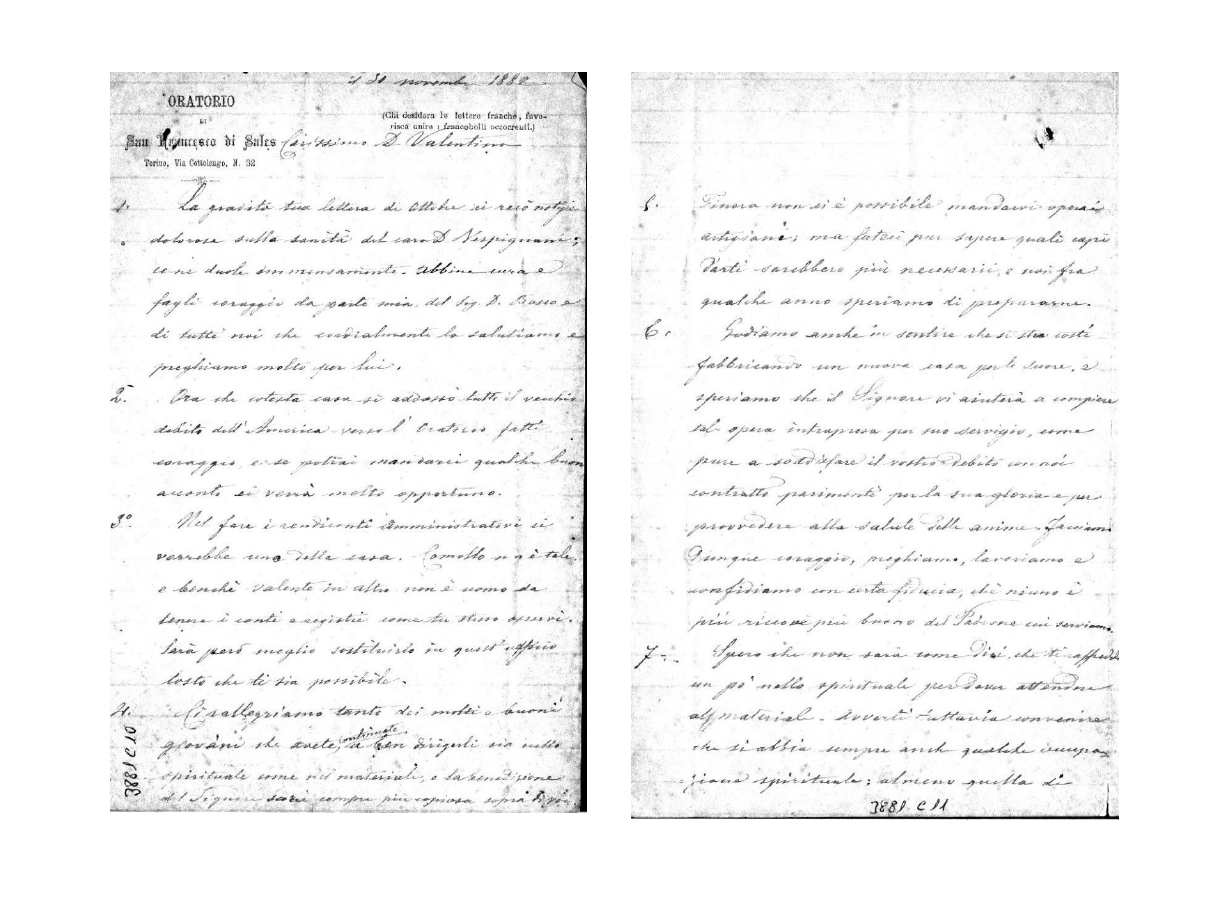 il 30 novembre 1882
ORATORIO
DI
San Francesco di Sales
Torino, Via Cottolengo, N. 32
(Chi desidera le lettere franche, favo-
risca unire i francobolli occorrenti.)
Carissimo D Valentino
1. La gradita tua lettera di Ottobre ci recò notizie
dolorose sulla sanità del caro D Vespignani;
ce ne duole immensamente. Abbine cura e
fagli coraggio da parte mia, del Sig. D. Bosco e
di tutti noi che cordialmente lo salutiamo e
preghiamo molto per lui.
2. Ora che cotesta casa si addossò tutto il vecchio
debito dell'America verso l'Oratorio fatti
coraggio, e se potrai mandarci qualche buon
acconto ci verrà molto opportuno.
3° Nel fare i rendiconti amministrativi ci
vorrebbe uno della casa. Comotto n è tale
e benchè valente in altro non è uomo da
tenere i conti e registri come tu stesso osservi.
Sarà però meglio sostituirlo in quest'uffizio
tosto che ti sia possibile.
4. Ci rallegriamo tanto dei molti e buoni
giovani che avete, continuate a ben dirigerli sia nello
spirituale come nel materiale, e la benedizione
del Signore sarà sempre più copiosa sopra di voi
3881 C 10
5. Finora non si è possibile mandarvi operai
artigiani; ma fateci pur sapere quali capi
d'arti sarebbero più necessarii, e noi fra
qualche anno speriamo di prepararne.
6. Godiamo anche in sentire che si sta costì
fabbricando un nuova casa per le suore, e
speriamo che il Signore vi aiuterà a compiere
tal opera intrapresa per suo servigio, come
pure a soddisfare il vostro debito con noi
contratto parimenti per la sua gloria e per
provvedere alla salute delle anime. Facciamo
dunque coraggio, preghiamo, lavoriamo e
confidiamo con certa fiducia, chè niuno è
più ricco e più buono del Padrone cui serviamo.
7. Spero che non sarà come dici, che ti raffreddi
un po' nello spirituale per dover attendere
al materiale. Avverti tuttavia convenire
che si abbia sempre anch qualche occupa-
zione spirituale; almeno quella di
3881 C 11